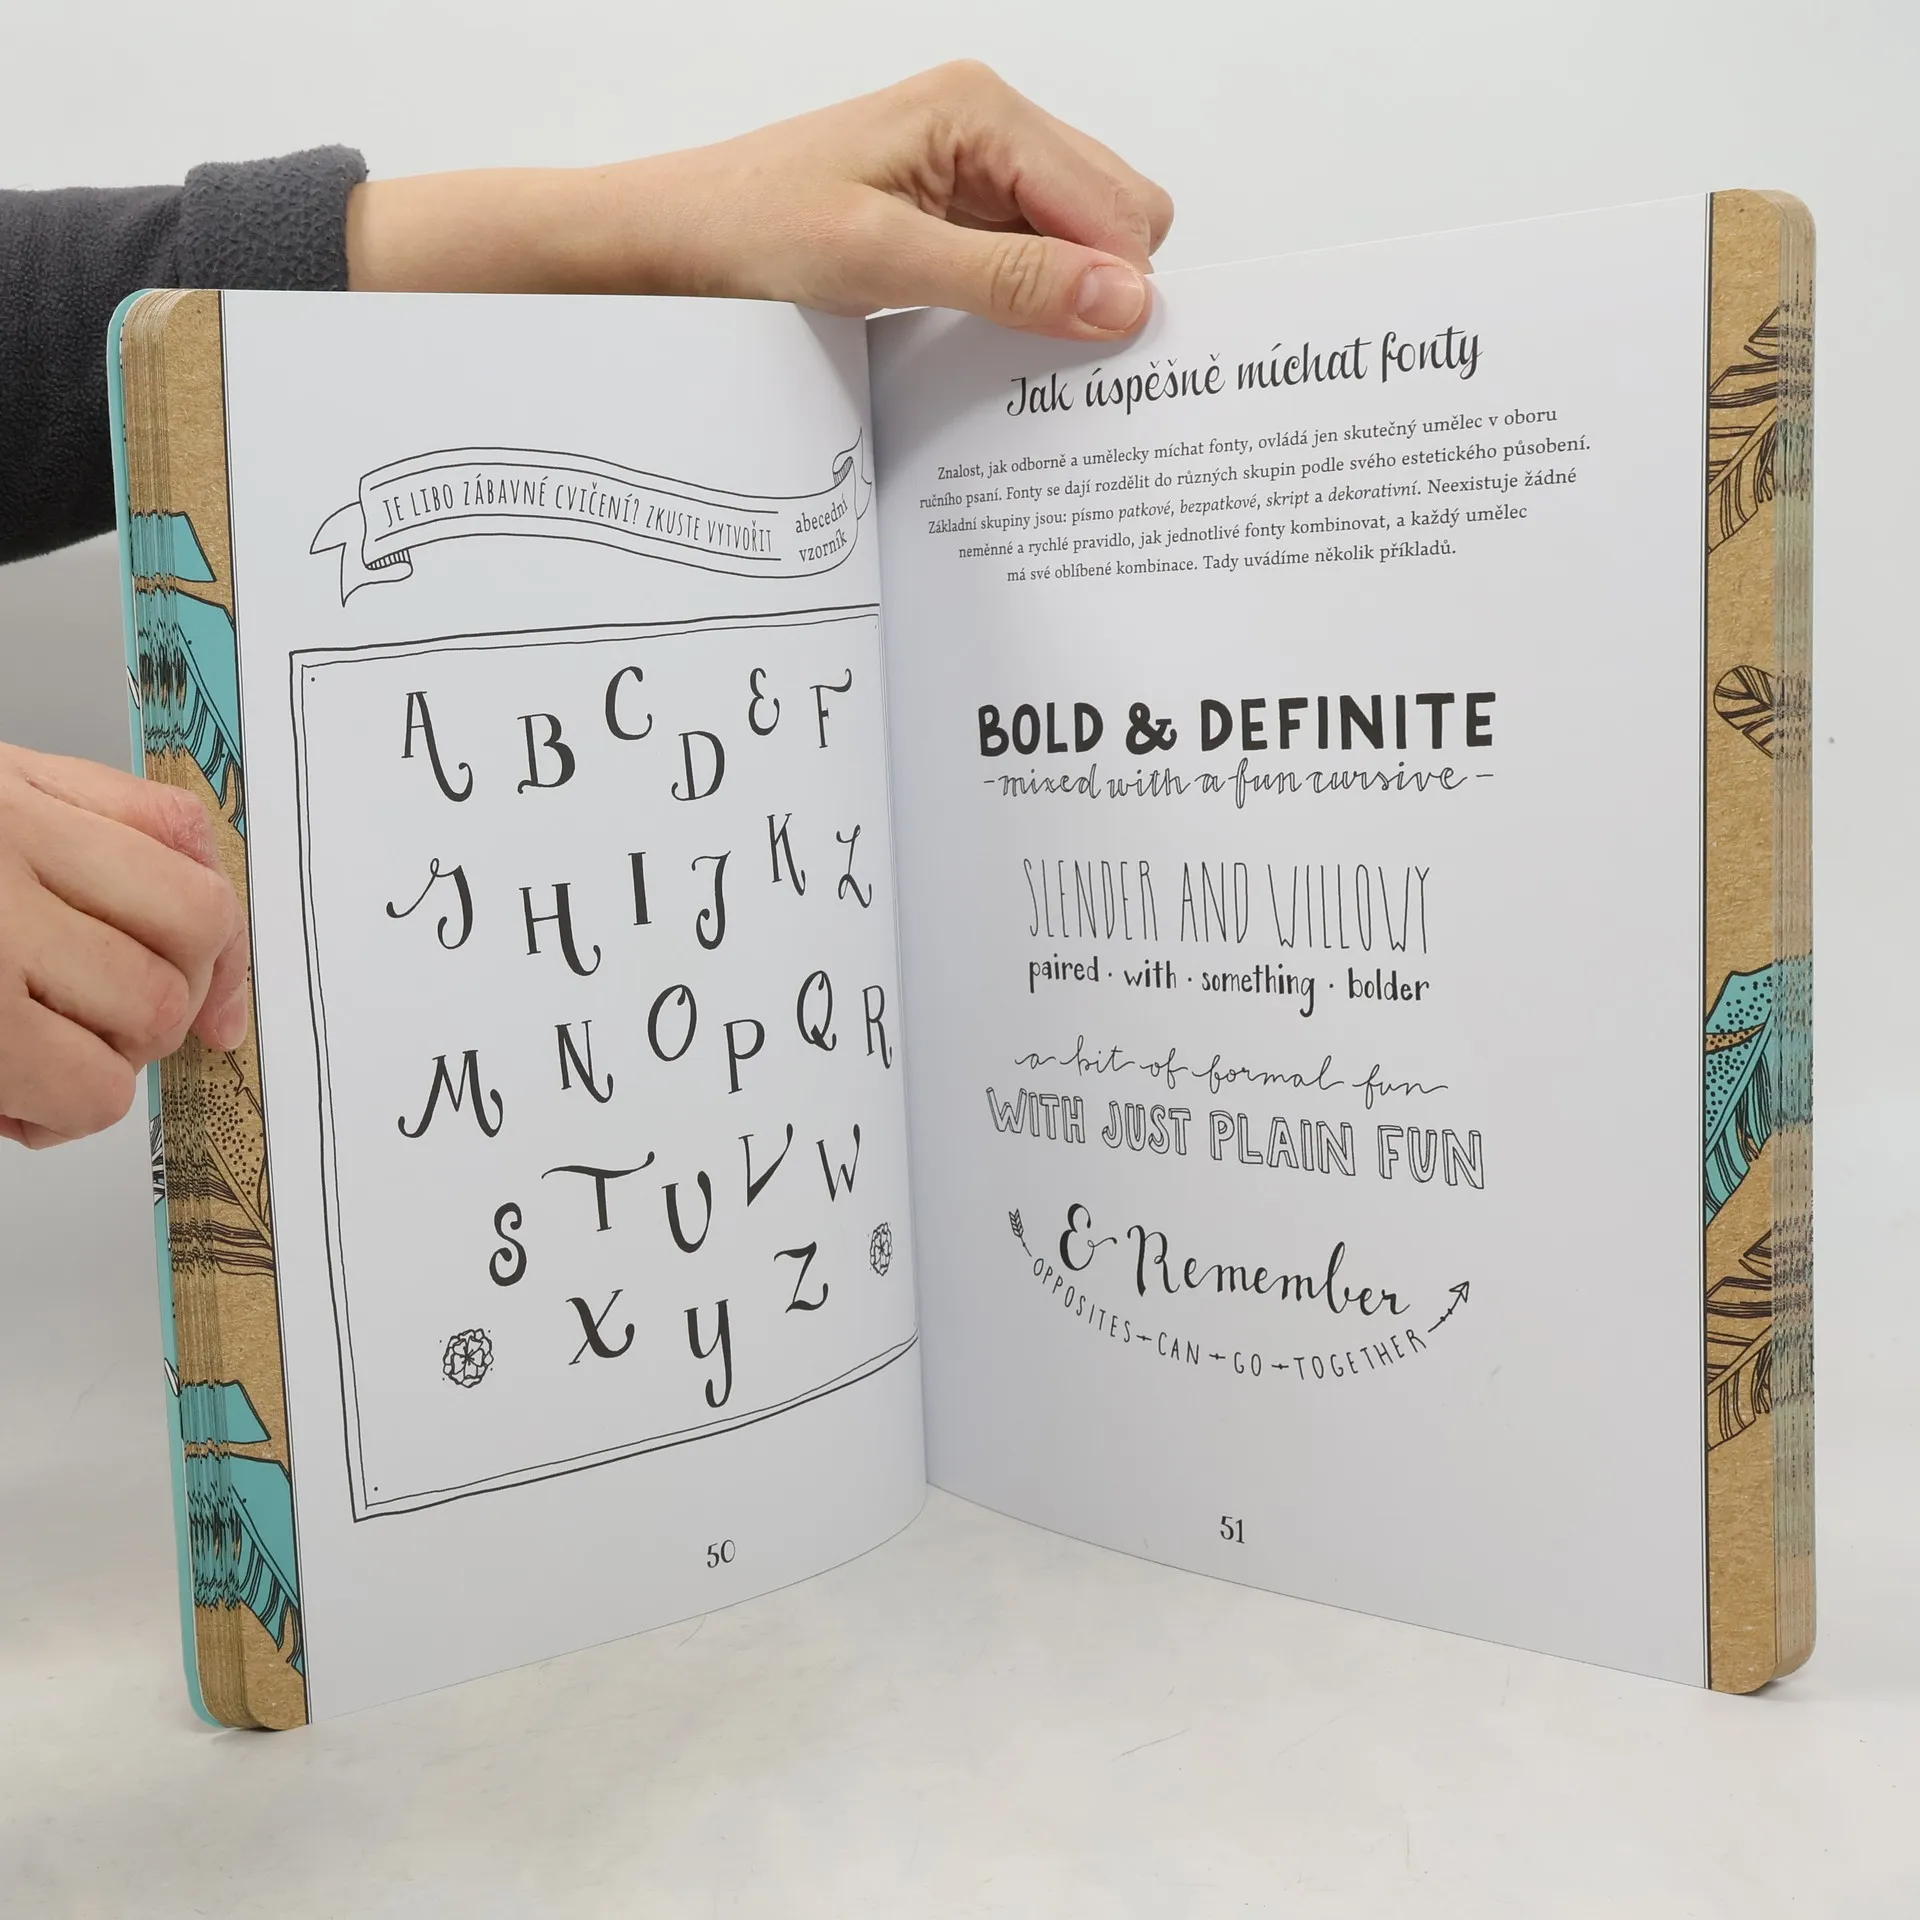 JE LIBO ZÁBAVNÉ CVIČENÍ? ZKUSTE VYTVOŘIT
abecední
vzorník
A B C D E F
G H I J K L
M N O P Q R
S T U V W
X Y Z
50
Jak úspěšně míchat fonty
Znalost, jak odborně a umělecky míchat fonty, ovládá jen skutečný umělec v oboru
ručního psaní. Fonty se dají rozdělit do různých skupin podle svého estetického působení.
Základní skupiny jsou: písmo patkové, bezpatkové, skript a dekorativní. Neexistuje žádné
neměnné a rychlé pravidlo, jak jednotlivé fonty kombinovat, a každý umělec
má své oblíbené kombinace. Tady uvádíme několik příkladů.
BOLD & DEFINITE
- mixed with a fun cursive -
SLENDER AND WILLOWY
paired · with · something · bolder
a bit of formal fun
WITH JUST PLAIN FUN
& Remember
OPPOSITES CAN GO TOGETHER
51